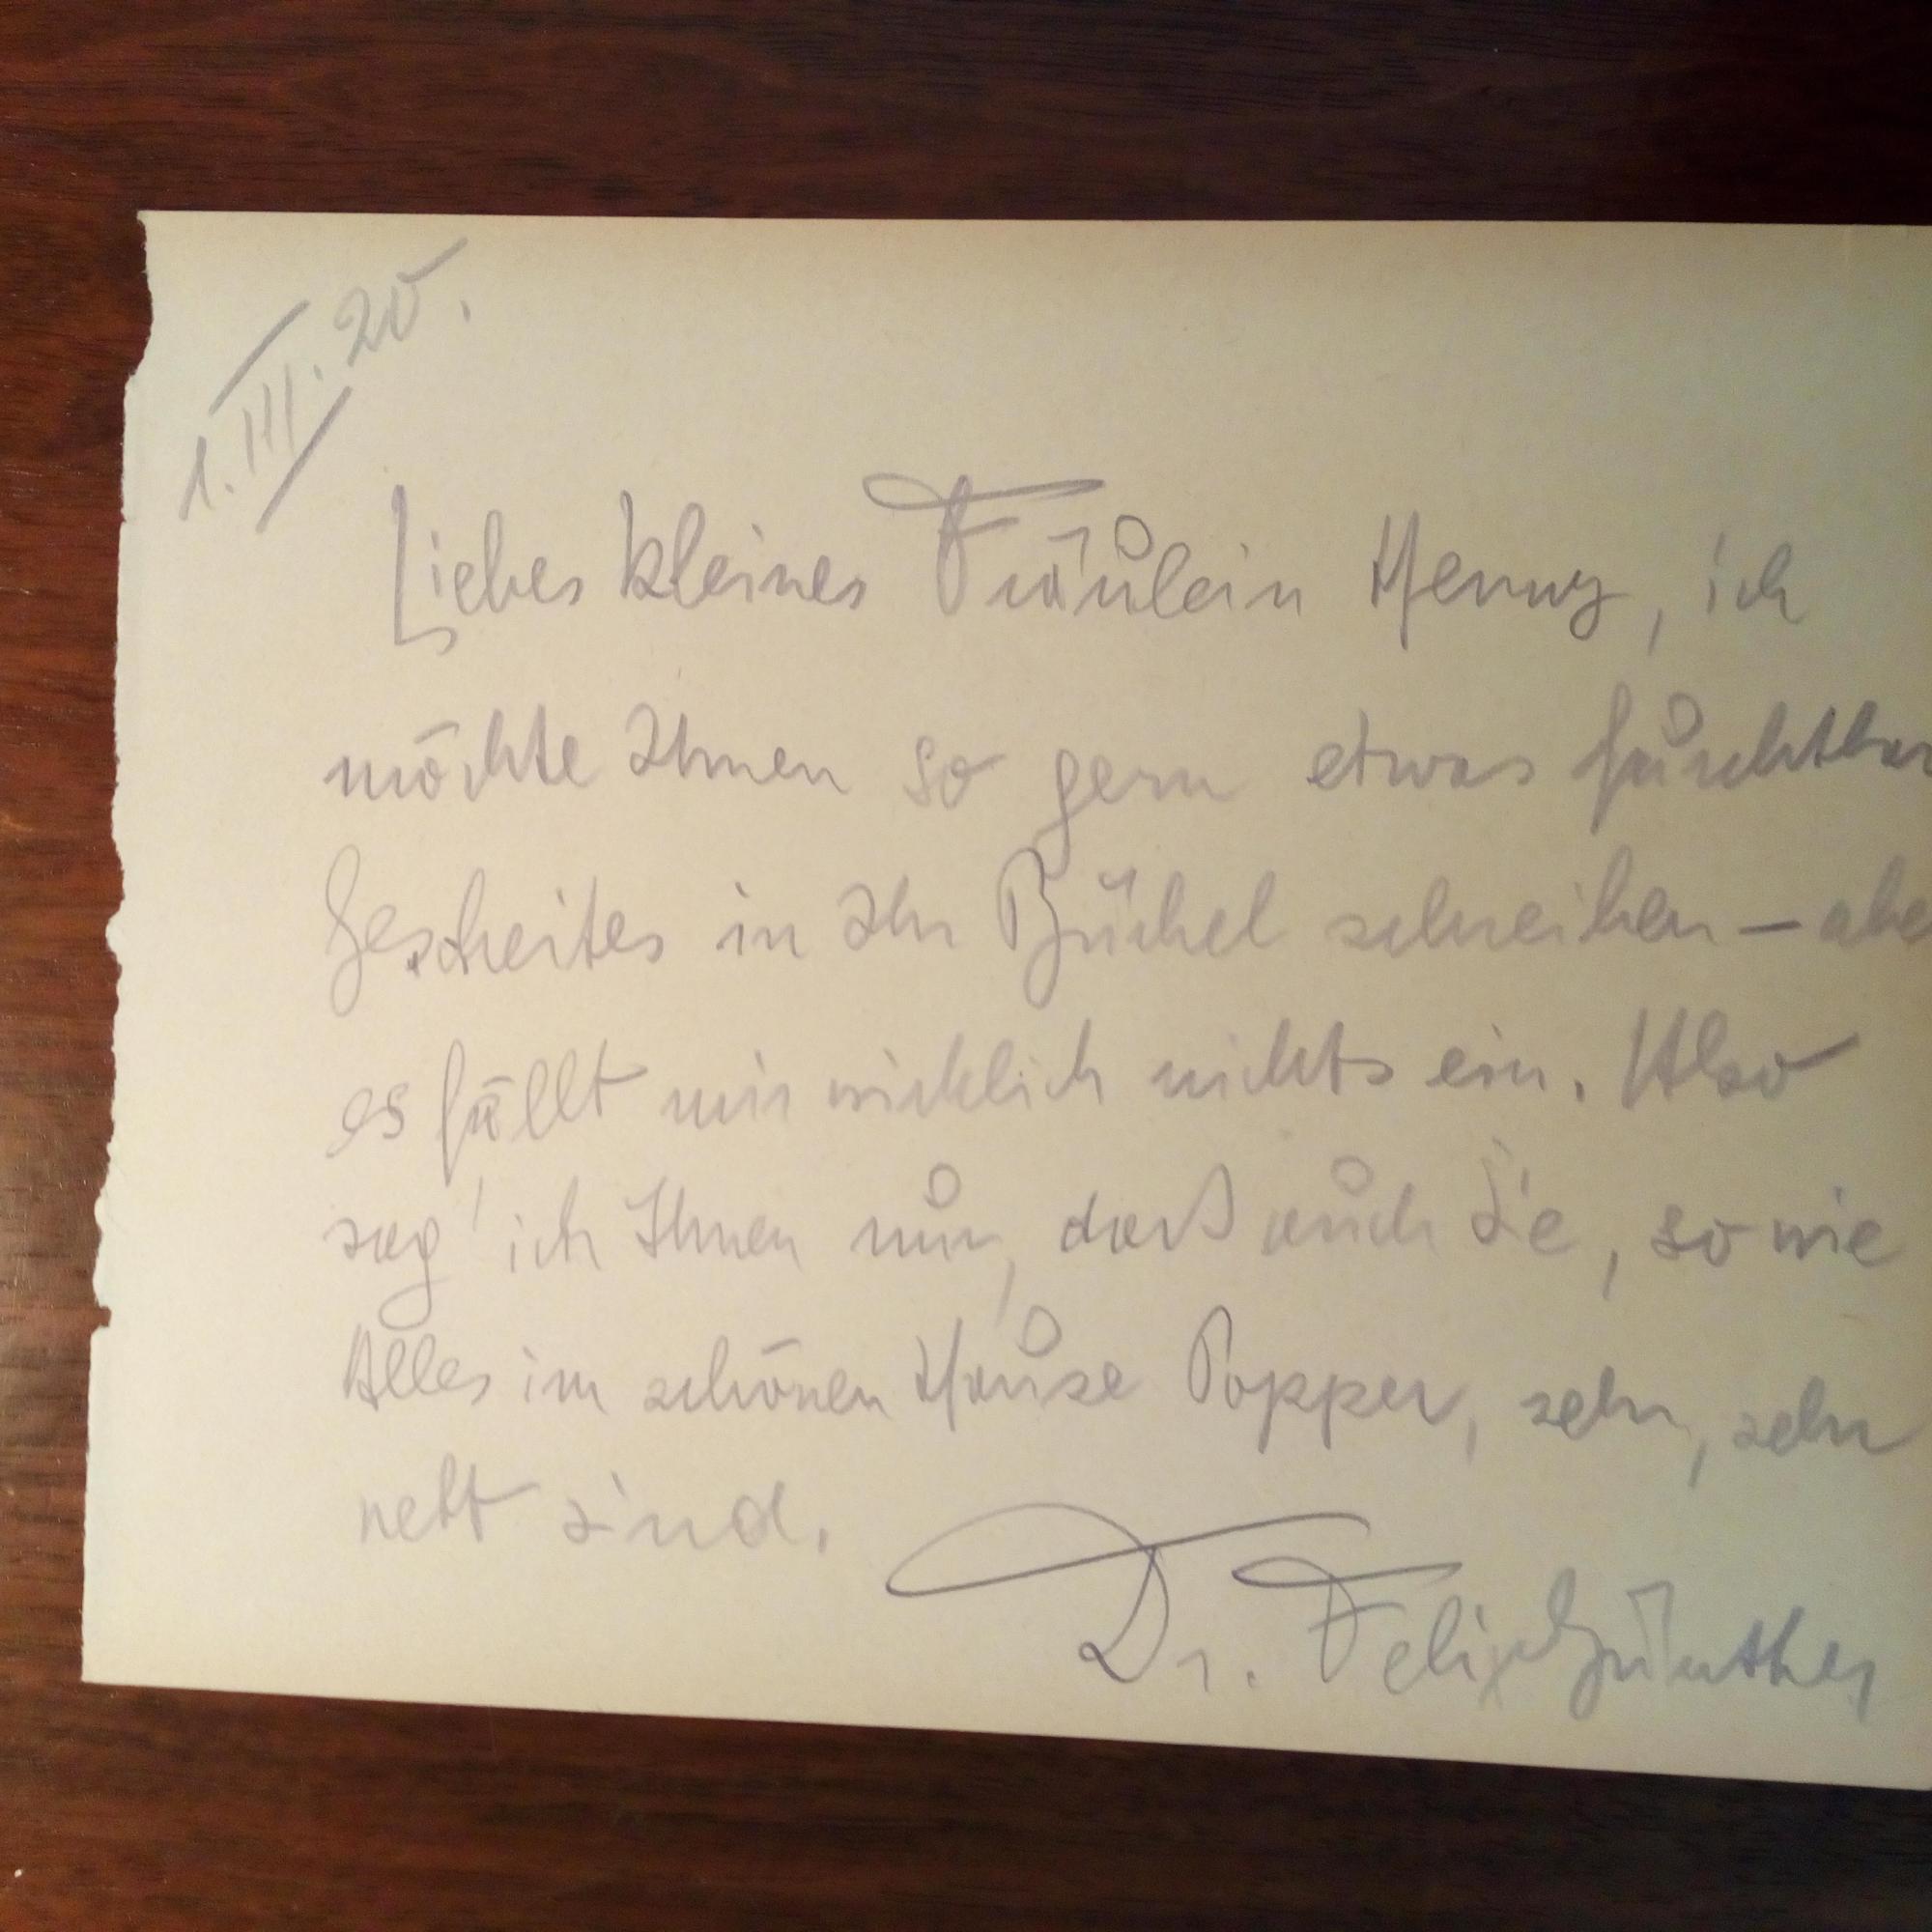 1. III. 20.
Liebes kleines Fräulein Henny, ich
möchte Ihnen so gern etwas furchtbar
Gescheites in Ihr Büchel schreiben – abe
es fällt mir wirklich nichts ein. Also
sag' ich Ihnen nur, daß auch Sie, so wie
Alles im schönen Hause Popper, sehr, sehr
nett sind.
Dr. Felix Günther